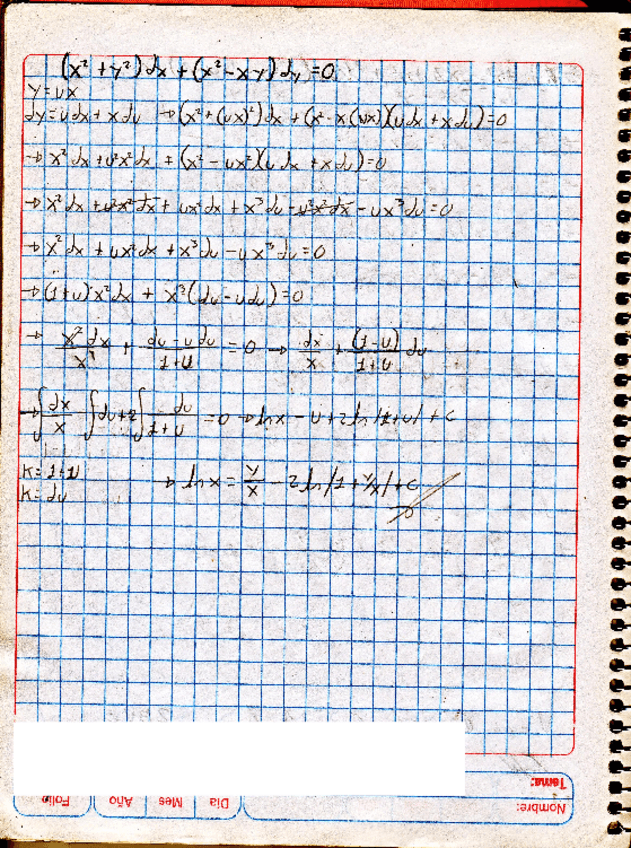 (x² + y²) dx + (x² - xy) dy = 0
y = ux
dy = u dx + x du → (x² + (ux)²) dx + (x² - x(ux))(u dx + x du) = 0
→ x² dx + u²x² dx + (x² - ux²)(u dx + x du) = 0
→ x² dx + u²x² dx + ux² dx + x³ du - u²x² dx - ux³ du = 0
→ x² dx + ux² dx + x³ du - ux³ du = 0
→ (1+u) x² dx + x³ (du - u du) = 0
→ x² dx / x³ + (du - u du) / (1+u) = 0 → dx/x + (1-u)/(1+u) du
→ ∫ dx/x ∫ du + 2 ∫ du/(1+u) = 0 → ln x - u + 2 ln |1+u| + c
K = 1+u
K = du
→ ln x = y/x - 2 ln |1 + y/x| + c
Tema:
Nombre:
Día Mes Año Folio